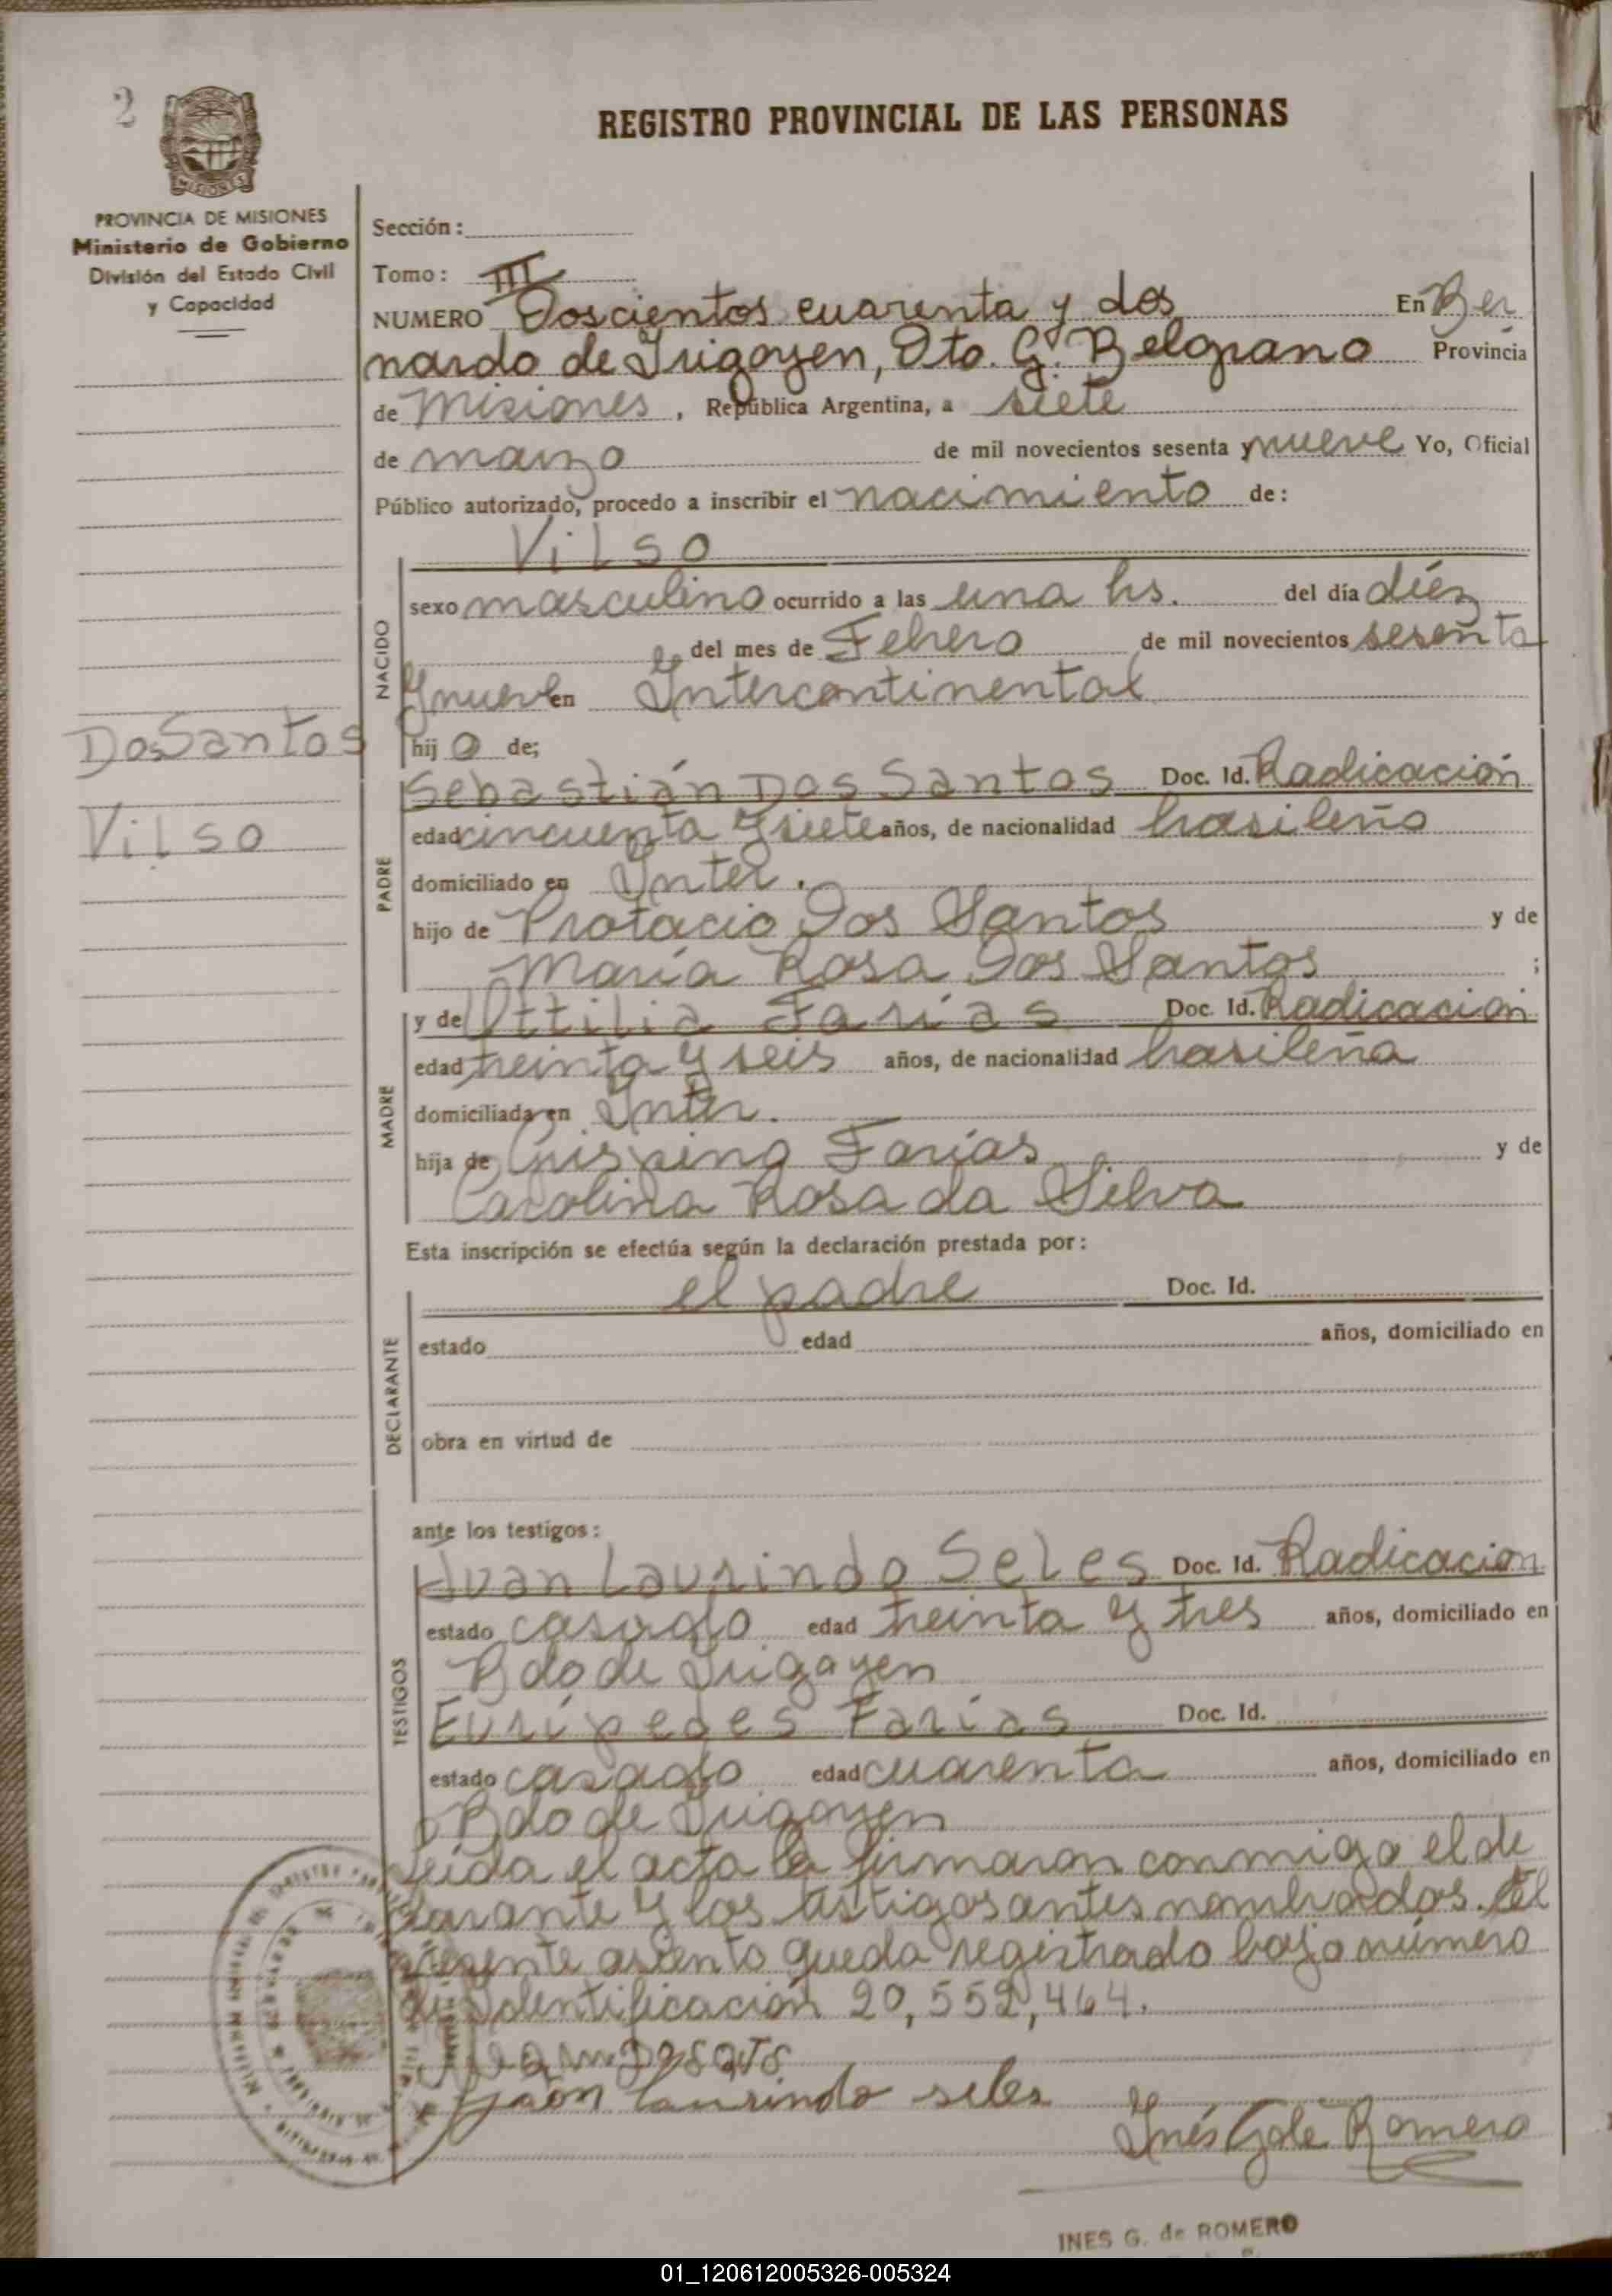 2
REGISTRO PROVINCIAL DE LAS PERSONAS
PROVINCIA DE MISIONES
Ministerio de Gobierno
División del Estado Civil
y Capacidad
Sección:
Tomo: III
NUMERO Doscientos cuarenta y dos En Ber
nardo de Irigoyen, Dto. Gl. Belgrano Provincia
de Misiones, República Argentina, a siete
de marzo de mil novecientos sesenta y nueve Yo, Oficial
Público autorizado, procedo a inscribir el nacimiento de:
Vilso
NACIDO
sexo masculino ocurrido a las una hs. del día diéz
del mes de Febrero de mil novecientos sesenta
y nueve en Intercontinental
hijo de;
Dos Santos
Vilso
PADRE
Sebastián Dos Santos Doc. Id. Radicación
edad cincuenta y siete años, de nacionalidad brasileño
domiciliado en Inter.
hijo de Protacio Dos Santos y de
María Rosa Dos Santos ;
MADRE
y de Ottilia Farías Doc. Id. Radicación
edad treinta y seis años, de nacionalidad brasileña
domiciliada en Inter.
hija de Farías y de
Carolina Rosa da Silva
Esta inscripción se efectúa según la declaración prestada por:
DECLARANTE
el padre Doc. Id.
estado edad años, domiciliado en
obra en virtud de
ante los testigos:
TESTIGOS
Juan Laurindo Seles Doc. Id. Radicación
estado casado edad treinta y tres años, domiciliado en
Bdo de Irigoyen
Eurípedes Farías Doc. Id.
estado casado edad cuarenta años, domiciliado en
Bdo de Irigoyen
Leída el acta la firmaron conmigo el de
clarante y los testigos antes nombrados. El
presente asiento queda registrado bajo número
de Identificación 20,552,464.
laurindo seles
Inés Golé Romero
INES G. de ROMERO
01_120612005326-005324